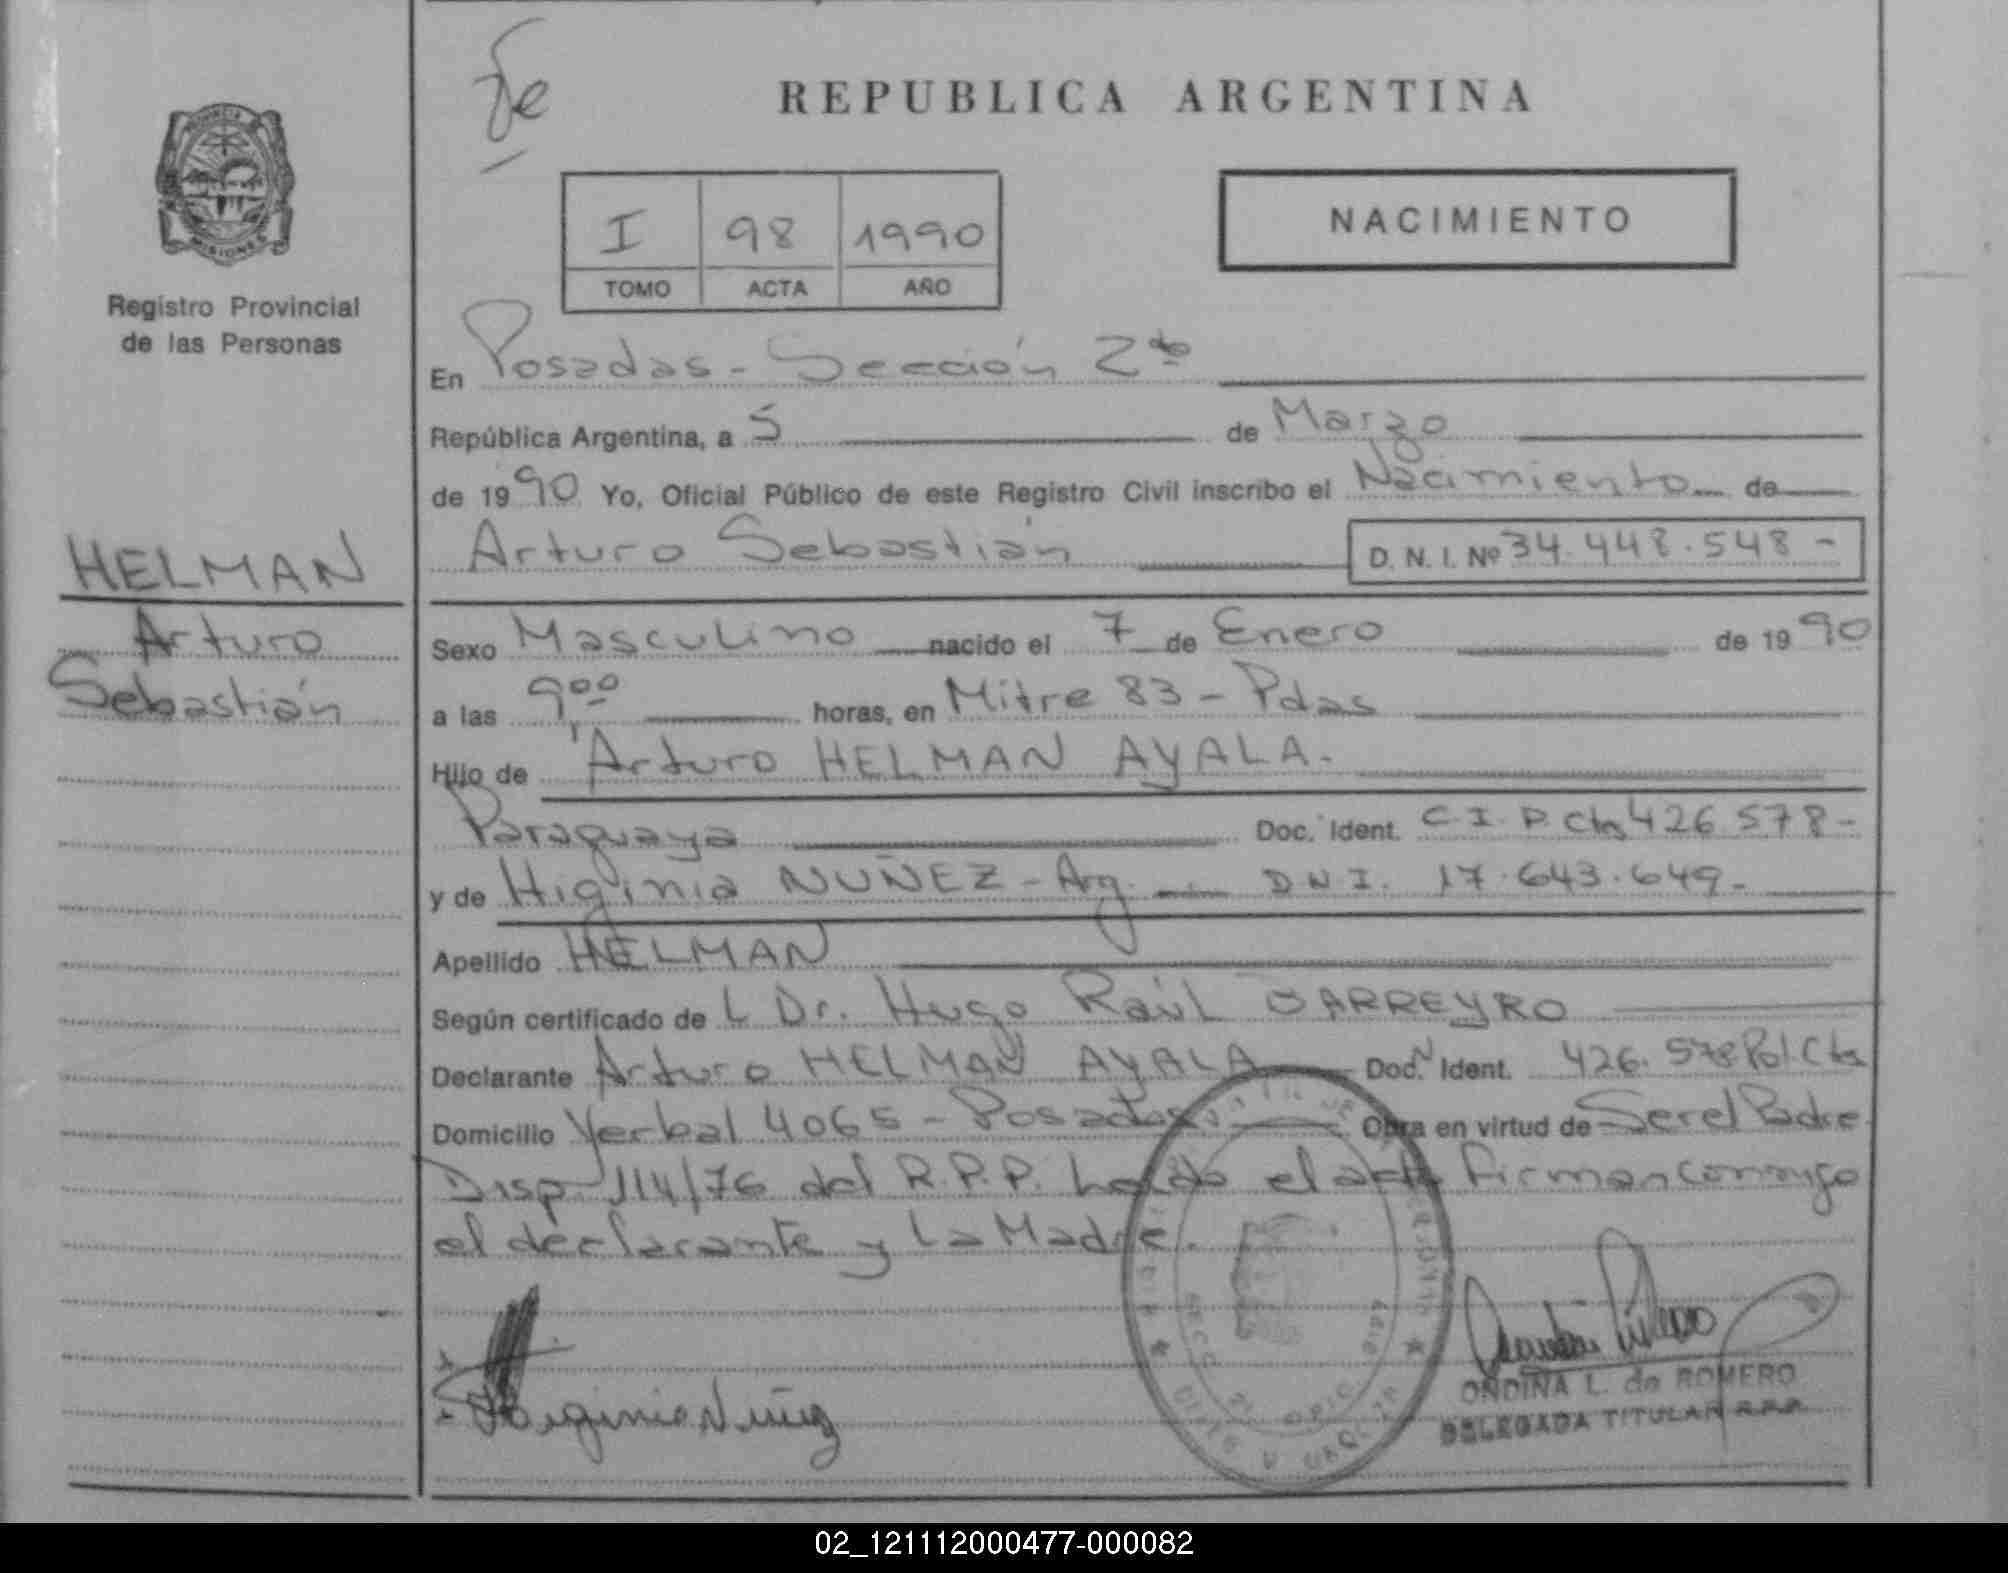 PROVINCIA
MISIONES
Registro Provincial
de las Personas
HELMAN
Arturo
Sebastián
REPUBLICA ARGENTINA
I 98 1990
TOMO ACTA AÑO
NACIMIENTO
En Posadas - Sección 2da
República Argentina, a 5 de Marzo
de 1990 Yo, Oficial Público de este Registro Civil inscribo el Nacimiento de
Arturo Sebastián D. N. I. Nº 34.448.548 -
Sexo Masculino nacido el 7 de Enero de 1990
a las 9,00 horas, en Mitre 83 - Pdas
Hijo de Arturo HELMAN AYALA.
Paraguaya Doc. Ident. C.I.P.Ctes 426578 -
y de Higinia NUÑEZ - Arg. DNI. 17.643.649 -
Apellido HELMAN
Según certificado de L Dr. Hugo Raúl BARREYRO
Declarante Arturo HELMAN AYALA Doc. Ident. 426.578 Pol. Ctes
Domicilio Yerbal 4065 - Posadas Obra en virtud de Ser el Padre
Disp. 114/76 del R.P.P. Leída el acta firman conmigo
el declarante y La Madre.
Higinia Nuñez
ONDINA L. de ROMERO
DELEGADA TITULAR R.P.P.
02_121112000477-000082